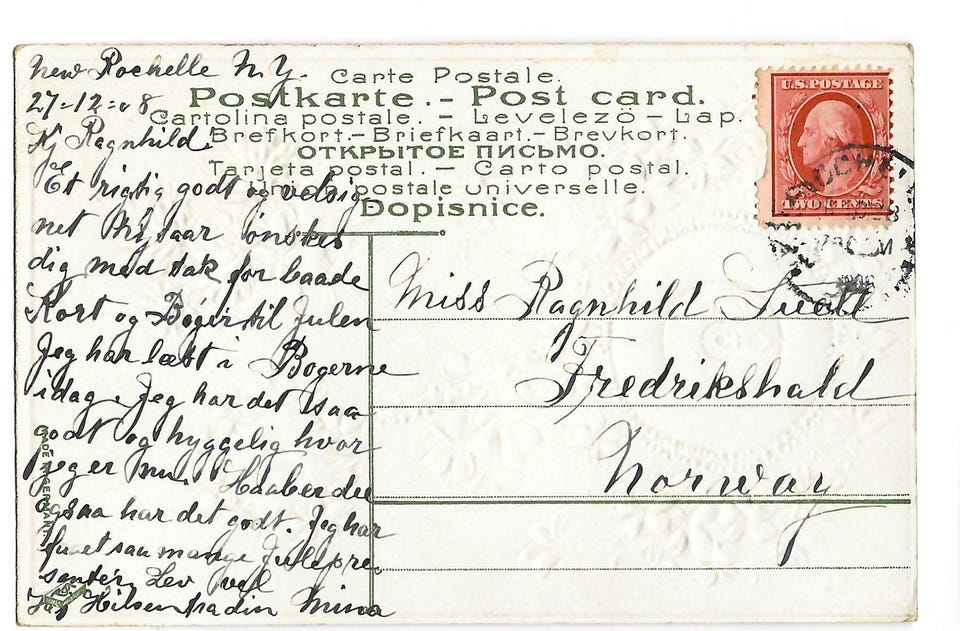 New Rochelle N.Y.
27-12-08
Kj Ragnhild!
Et rigtig godt og velsig
net Nytaar ønskes
dig med tak for baade
Kort og Bøger til Julen
Jeg har læst i Bøgerne
idag. Jeg har det saa
godt og hyggelig hvor
jeg er nu. Haaber du
ogsaa har det godt. Jeg har
faaet saa mange Julepre
senter. Lev vel
Hilsen fra din Mina
Carte Postale.
Postkarte.-Post card.
Cartolina postale. - Levelezö-Lap.
Brefkort.-Briefkaart.-Brevkort.
ОТКРЫТОЕ ПИСЬМО.
Tarjeta postal. - Carto postal.
postale universelle.
Dopisnice.
U.S.POSTAGE
TWO CENTS
Miss Ragnhild
Fredrikshald
Norway